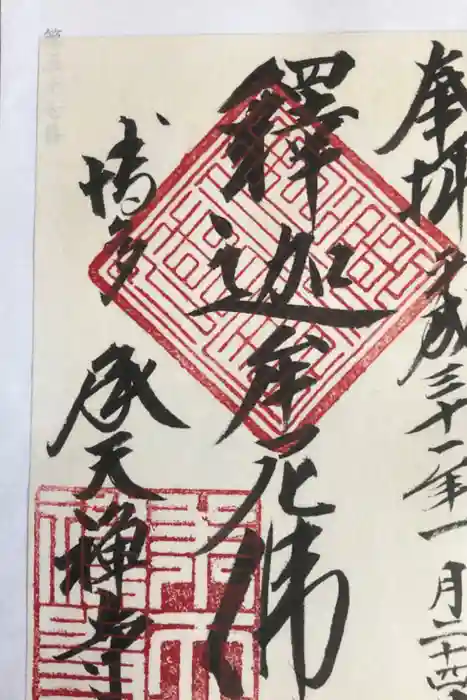 奉拝 平成三十一年一月二十四
釋迦牟尼佛
博多 承天禅寺